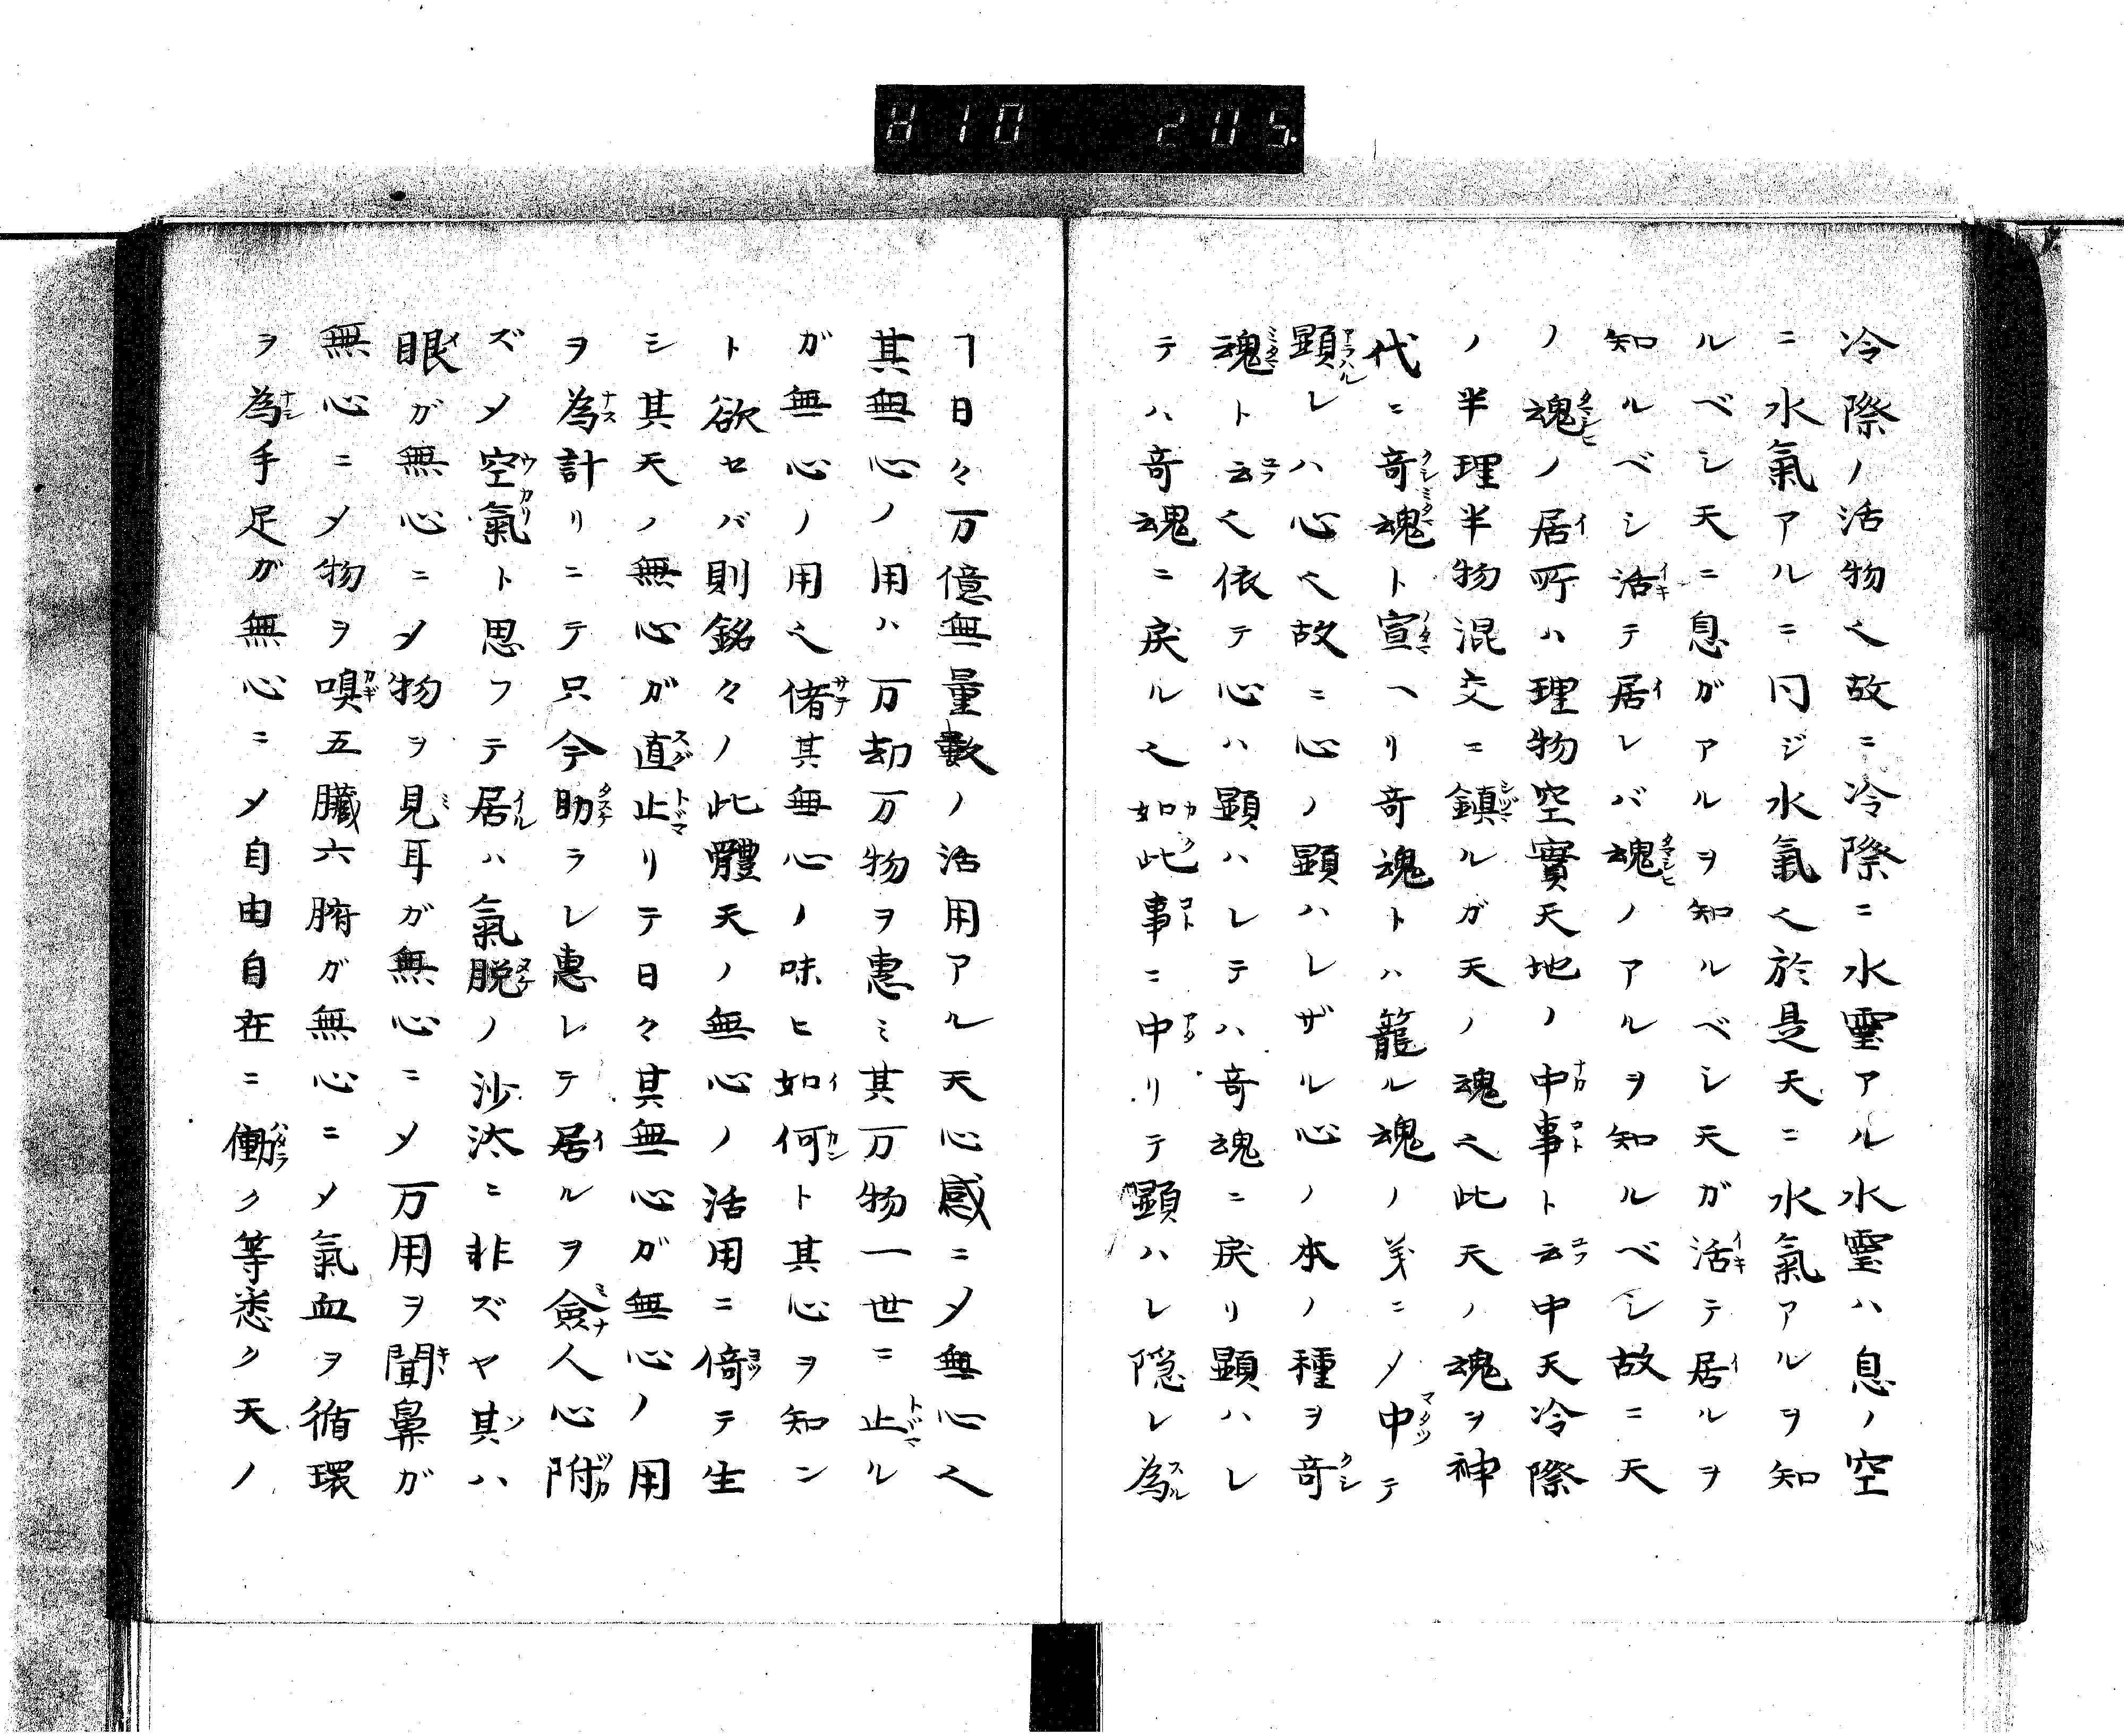 H10 205.
冷際ノ活物也故ニ冷際ニ水靈アル水靈ハ息ノ空
ニ水氣アルニ同ジ水氣也於是天ニ水氣アルヲ知
ルベシ天ニ息ガアルヲ知ルベシ天ガ活テ居ルヲ
知ルベシ活テ居レバ魂ノアルヲ知ルベシ故ニ天
ノ魂ノ居所ハ理物空實天地ノ中事ト云中天冷際
ノ半理半物混交ニ鎮ルガ天ノ魂也此天ノ魂ヲ神
代ニ奇魂ト宣ヘリ奇魂トハ籠ル魂ノ義ニノ中テ
顕レハ心也故ニ心ノ顕ハレザル心ノ本ノ種ヲ奇
魂ト云也依テ心ハ顕ハレテハ奇魂ニ戻リ顕ハレ
テハ奇魂ニ戻ル也如此事ニ中リテ顕ハレ隠レ為
ヿ日々万億無量數ノ活用アル天心感ニ〆無心也
其無心ノ用ハ万却万物ヲ惠ミ其万物一世ニ止ル
ガ無心ノ用也偖其無心ノ味ヒ如何ト其心ヲ知ン
ト欲セバ則銘々ノ此體天ノ無心ノ活用ニ倚テ生
シ其天ノ無心ガ直止リテ日々其無心ガ無心ノ用
ヲ為計リニテ只今助ラレ惠レテ居ルヲ僉人心附
ズ〆空氣ト思フテ居ハ氣脱ノ沙汰ニ非ズヤ其ハ
眼ガ無心ニ〆物ヲ見耳ガ無心ニ〆万用ヲ聞鼻ガ
無心ニ〆物ヲ嗅五臓六腑ガ無心ニ〆氣血ヲ循環
ヲ為手足ガ無心ニ〆自由自在ニ働ク等悉ク天ノ